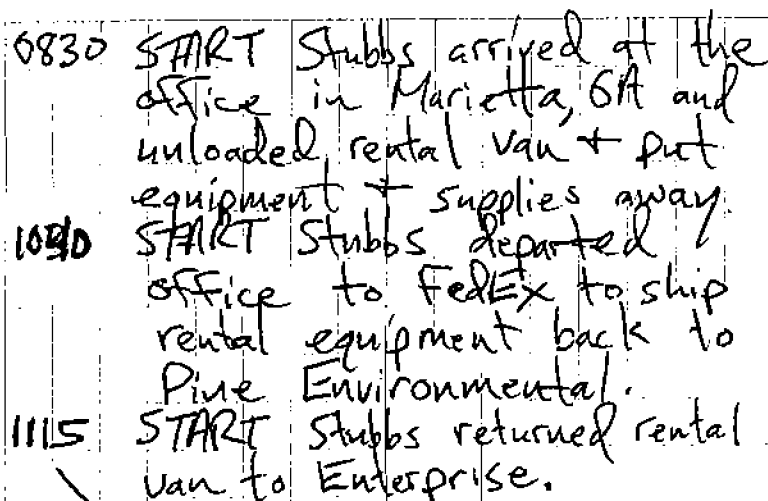 0830 START Stubbs arrived at the
office in Marietta, GA and
unloaded rental van + put
equipment + supplies away.
START Stubbs departed
office to FedEx to ship
rental equipment back to
Pine Environmental.
1115 START Stubbs returned rental
van to Enterprise.